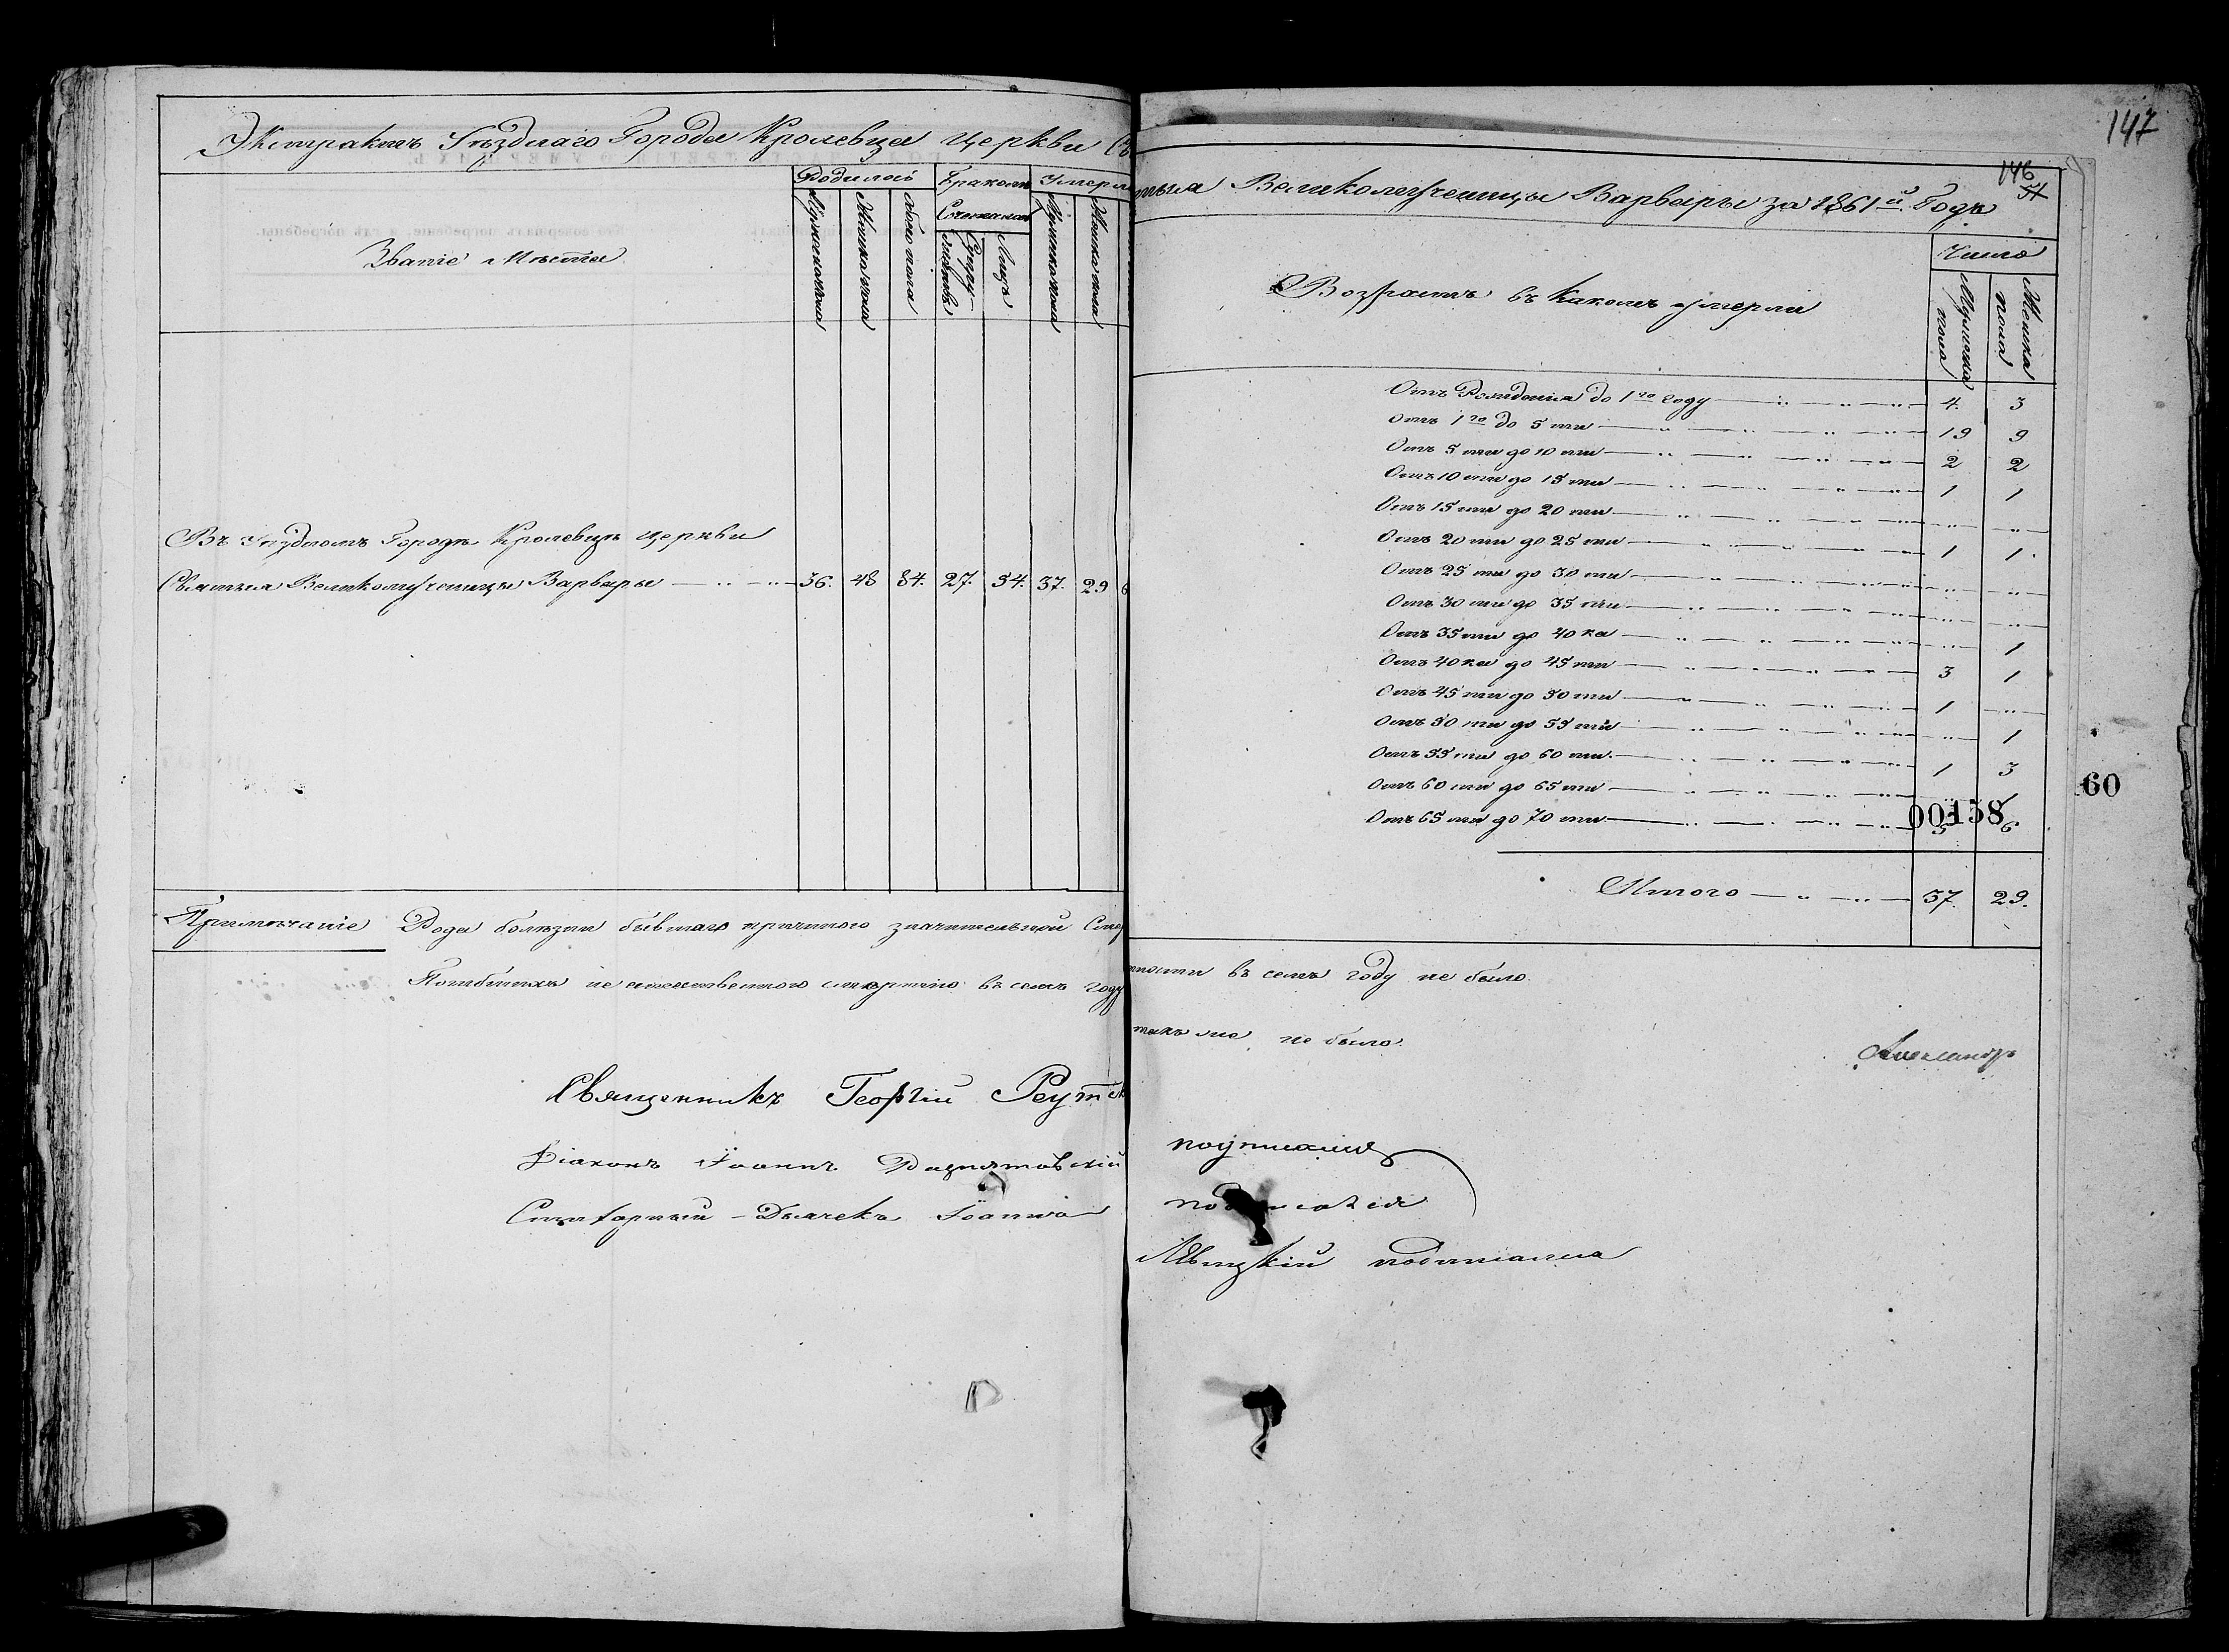 147
146
Экстрактъ Уѣзднаго Города Кролевца Церкви Святыя Великомученицы Варвары за 1861й Годъ
Званіе Мѣста
Родилось
Мужеска пола
Женска пола
Обоего пола
Бракомъ
Сочетались
Супружествъ
Лицъ
Умерло
Мужеска пола
Женска пола
Въ Уѣздномъ Городѣ Кролевцѣ Церкви
Святыя Великомученицы Варвары 36. 48 84. 27. 54. 37. 29 6
Возрастъ въ какомъ умерли
Число
Мужеска пола
Женска пола
Отъ Рожденія до 1го году 4. 3
отъ 1го до 5 ти 19 9
Отъ 5 ти до 10 ти 2 2
Отъ 10 ти до 15 ти 1 1
Отъ 15 ти до 20 ти „ „
Отъ 20 ти до 25 ти 1 1.
Отъ 25 ти до 30 ти „ „
Отъ 30 ти до 35 ти „ „
Отъ 35 ти до 40 ка „ 1
Отъ 40 ка до 45 ти 3 1
Отъ 45 ти до 50 ти 1 „
Отъ 50 ти до 55 ти „ 1
Отъ 55 ти до 60 ти 1 3
Отъ 60 ти до 65 ти 1
Отъ 65 ти до 70 ти 5 6
00158
60
Итого 37. 29.
Примѣчаніе Рода болѣзни бывшаго причиною значительной Смертности въ семъ году не было.
Погибшихъ не естественною смертію въ семъ году также не было.
Александръ
Священникъ Георгій подписался
Діаконъ Іоаннъ подписался
Дьячекъ Іоаннъ Львицкій подписался